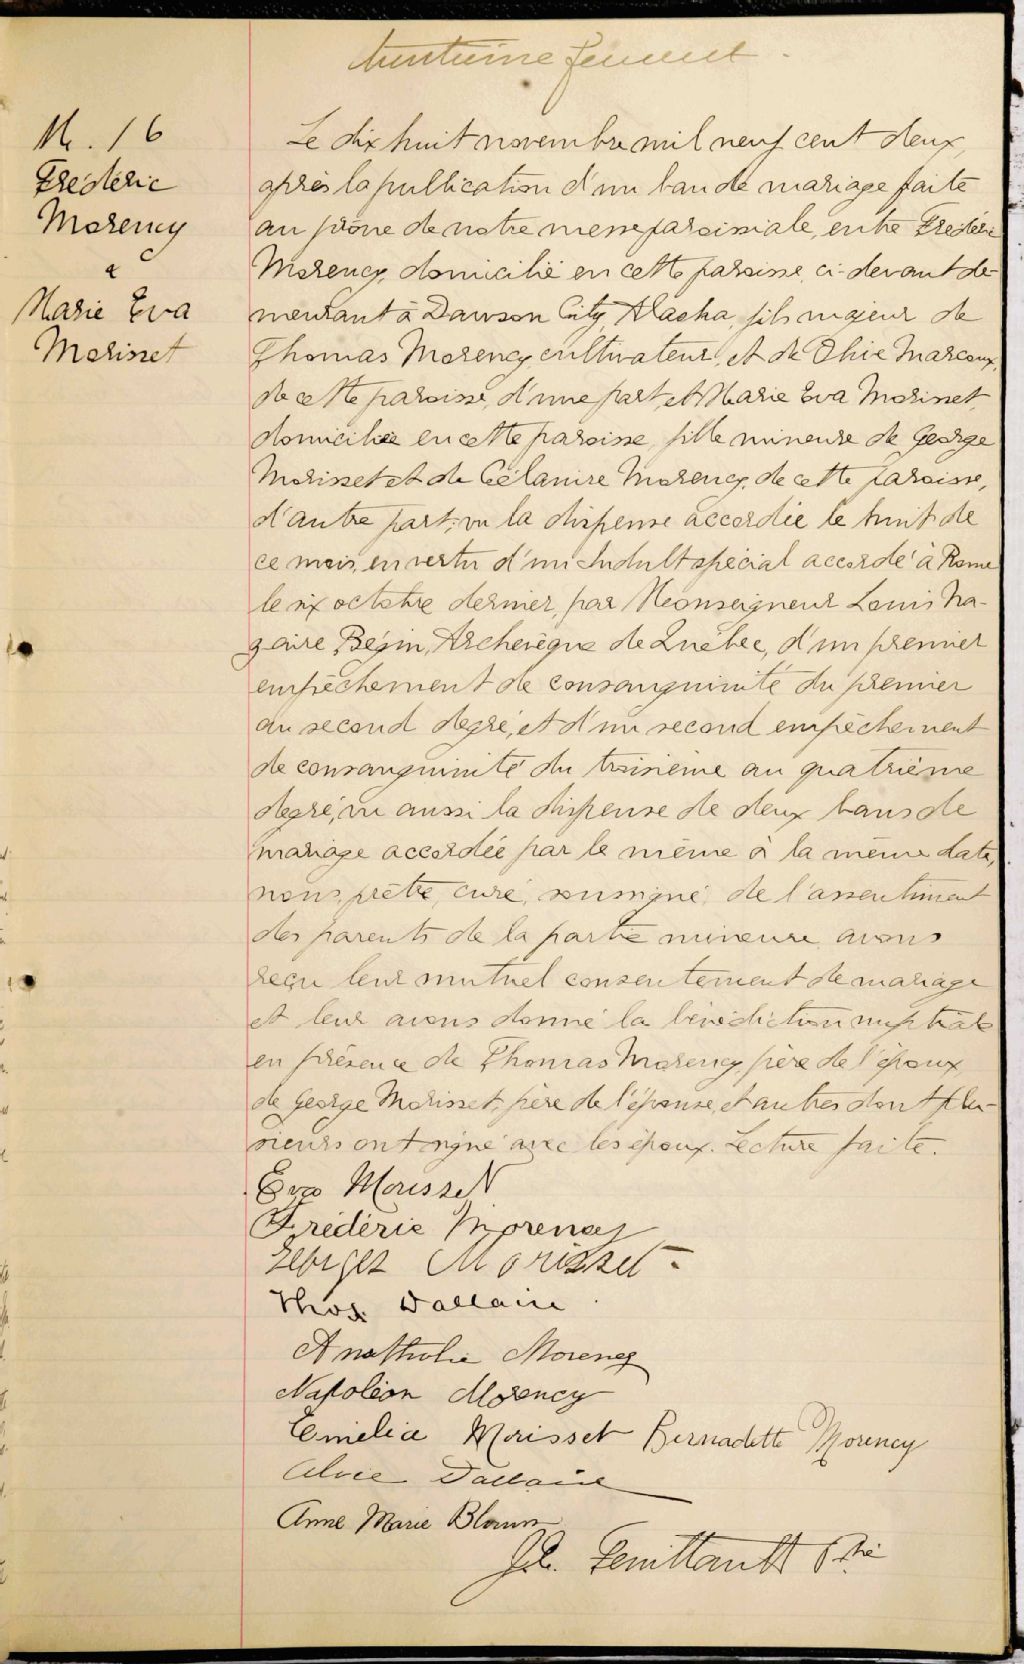 trentième feuillet
M. 16
Frédéric
Morency
&
Marie Eva
Morisset
Le dix huit novembre mil neuf cent deux,
après la publication d'un ban de mariage faite
au prône de notre messe paroissiale, entre Frédéric
Morency, domicilié en cette paroisse, ci-devant de-
meurant à Dawson City, Alaska, fils majeur de
Thomas Morency, cultivateur, et de Obie Marcoux,
de cette paroisse, d'une part, et Marie Eva Morisset,
domiciliée en cette paroisse, fille mineure de George
Morisset et de Célanire Morency, de cette paroisse,
d'autre part; vu la dispense accordée le huit de
ce mois, en vertu d'un Indult spécial accordé à Rome
le six octobre dernier, par Monseigneur Louis Na-
zaire Bégin, Archevêque de Québec, d'un premier
empêchement de consanguinité du premier
au second degré, et d'un second empêchement
de consanguinité du troisième au quatrième
degré; vu aussi la dispense de deux bans de
mariage accordée par le même à la même date,
nous, prêtre, curé, soussigné, de l'assentiment
des parents de la partie mineure, avons
reçu leur mutuel consentement de mariage
et leur avons donné la bénédiction nuptiale
en présence de Thomas Morency, père de l'époux,
de George Morisset, père de l'épouse, et autres dont plu-
sieurs ont signé avec les époux. Lecture faite.
Eva Morisset
Frédéric Morency
Georges Morisset
Thos. Dallaire
Anathalie Morency
Napoléon Morency
Emélia Morisset Bernadette Morency
Alvie Dallaire
Anne Marie Blouin
J.E. Feuiltault Ptre